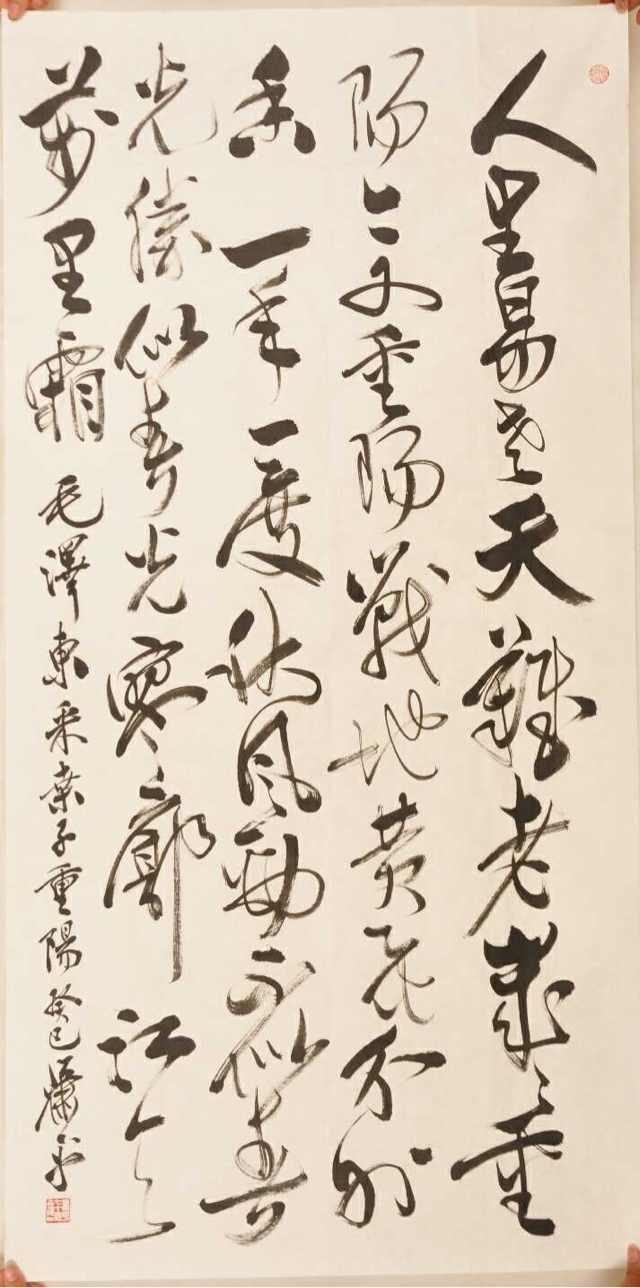 人生易老天難老歲々重
陽今又重陽戰地黄花分外
香一年一度秋風勁不似春
光勝似春光寥廓江天
萬里霜 毛澤東采桑子重陽癸巳